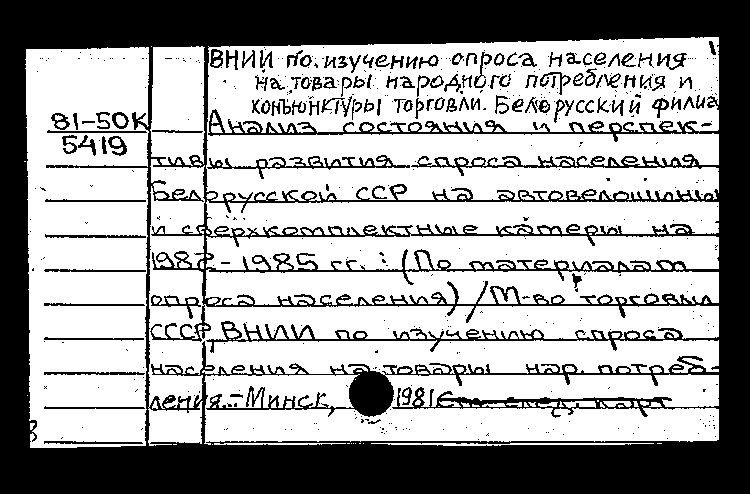 ВНИИ по изучению опроса населения
на товары народного потребления и
конъюнктуры торговли. Белорусский филиа
81-50К
5419
Анализ состояния и перспек-
тивы развития спроса населения
Белорусской ССР на автовелошинны
и сверхкомплектные камеры на
1982-1985 гг. : (По материалам
опроса населения) / М-во торговли
СССР, ВНИИ по изучению спроса
населения на товары нар. потреб-
ления.-Минск, 1981 См. след. карт